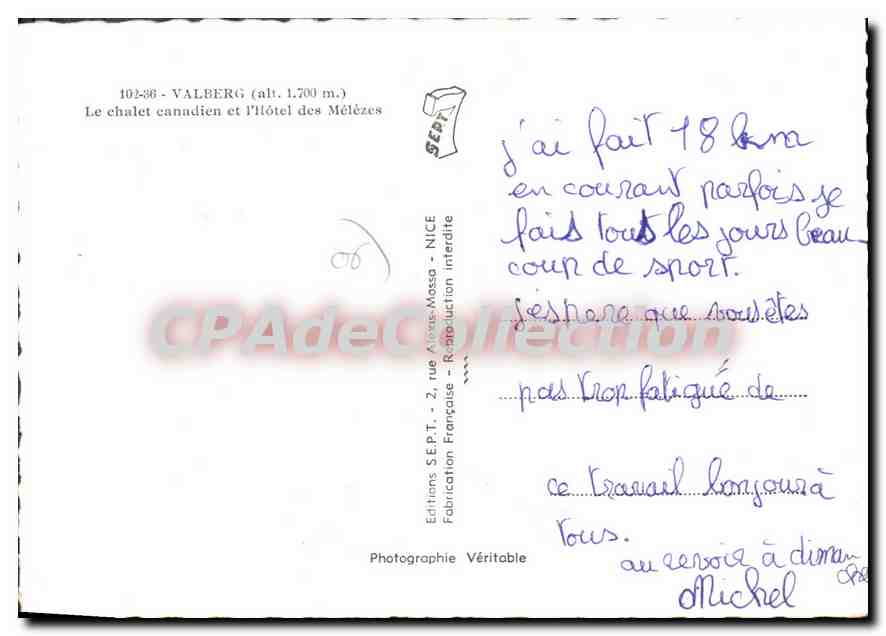 102-86 - VALBERG (alt. 1.700 m.)
Le chalet canadien et l'Hôtel des Mélèzes
SEPT
06
Editions S.E.P.T. - 2, rue Alexis-Mossa - NICE
Fabrication Française - Reproduction interdite
Photographie Véritable
CPAdeCollection
j'ai fait 18 km
en courant parfois je
fais tous les jours beau
coup de sport.
j'espere que vous êtes
pas trop fatigué de
ce travail bonjour à
tous.
au revoir à diman
che
Michel